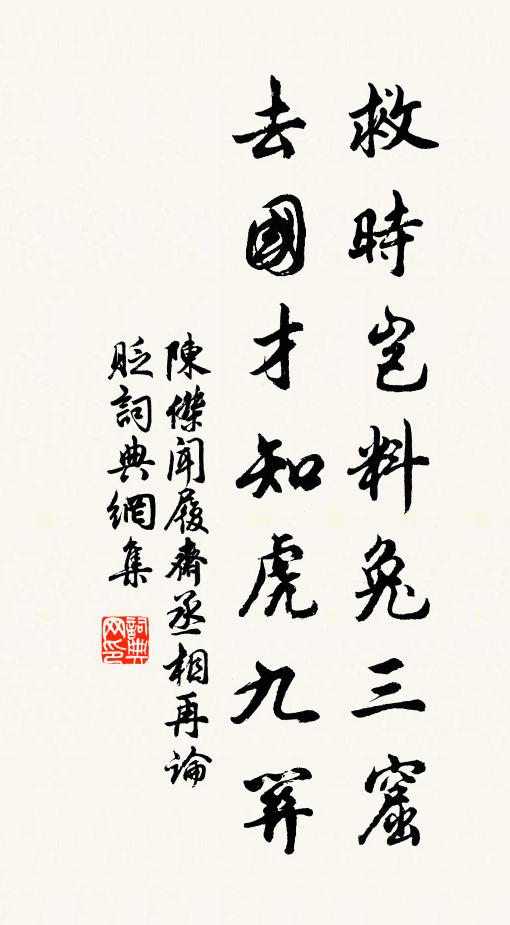 救時豈料兔三窟
去國才知虎九關
陳傑聞履齋丞相再論
貶詞典網集
詞典
网印